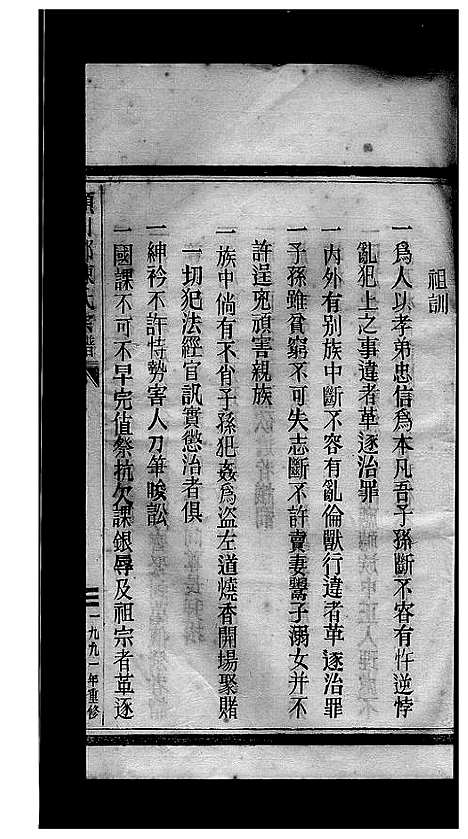 祖訓
一爲人以孝弟忠信爲本凡吾子孫斷不容有忤逆悖
亂犯上之事違者革逐治罪
一內外有別族中斷不容有亂倫獸行違者革逐治罪
一子孫雖貧窮不可失志斷不許賣妻鬻子溺女並不
許逞兇頑害親族
一族中倘有不肖子孫犯姦爲盜左道燒香開場聚賭
一切犯法經官訊實懲治者俱
一紳衿不許恃勢害人刀筆唆訟
一國課不可不早完值祭抗欠課銀辱及祖宗者革逐
川郡陳氏宗譜
一九九一年重修